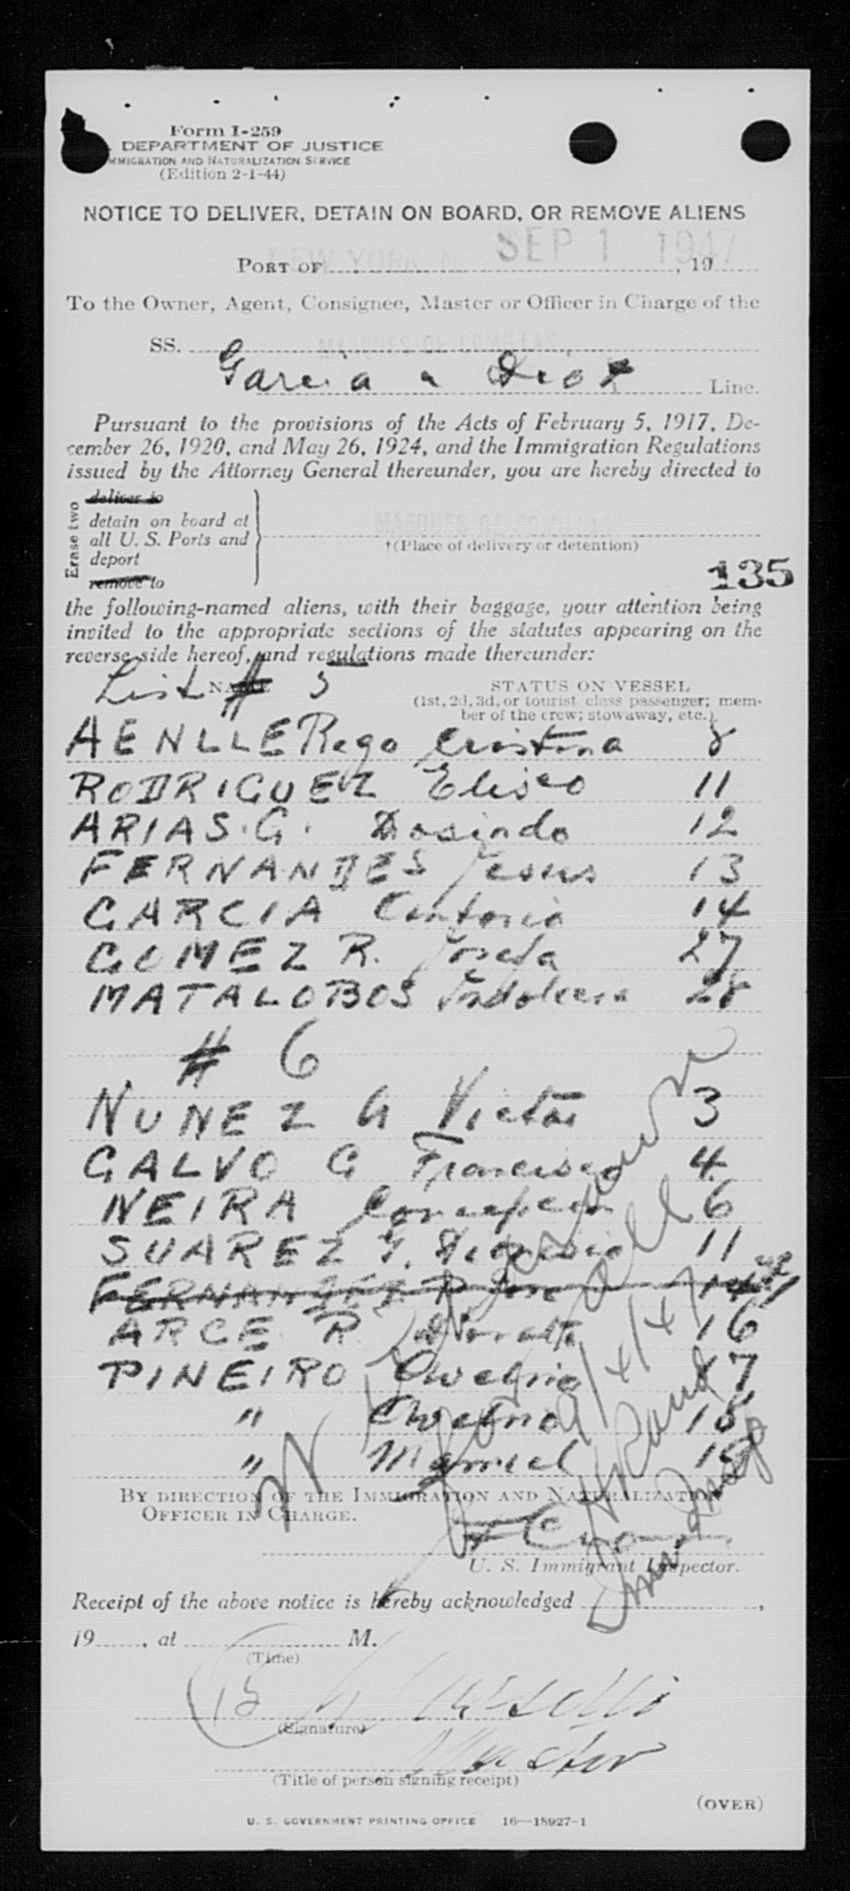 Form I-259
DEPARTMENT OF JUSTICE
IMMIGRATION AND NATURALIZATION SERVICE
(Edition 2-1-44)
NOTICE TO DELIVER, DETAIN ON BOARD, OR REMOVE ALIENS
NEW YORK SEP 1 1947
PORT OF , 19
To the Owner, Agent, Consignee, Master or Officer in Charge of the
SS. MARQUES DE COMILLAS
Garcia & Diaz Line.
Pursuant to the provisions of the Acts of February 5, 1917, De-
cember 26, 1920, and May 26, 1924, and the Immigration Regulations
issued by the Attorney General thereunder, you are hereby directed to
Erase two
deliver to
detain on board at
all U. S. Ports and
deport
remove to
MARQUES DE COMILLAS
†(Place of delivery or detention)
135
the following-named aliens, with their baggage, your attention being
invited to the appropriate sections of the statutes appearing on the
reverse side hereof, and regulations made thereunder:
List # 5
NAME STATUS ON VESSEL
(1st, 2d, 3d, or tourist class passenger; mem-
ber of the crew; stowaway, etc.)
AENLLE Rego Cristina 8
RODRIGUEZ Eliseo 11
ARIAS. G. Dosindo 12
FERNANDES Jesus 13
GARCIA Antonia 14
GOMEZ R. Josefa 27
MATALOBOS 28
# 6
NUNEZ G Victor 3
GALVO G Francisco 4
NEIRA Concepcion 6
SUAREZ F. Dionisio 11
FERNANDEZ R Jose 14
ARCE R. 16
PINEIRO 17
" 18
" Manuel 19
9/4/47
BY DIRECTION OF THE IMMIGRATION AND NATURALIZATION
OFFICER IN CHARGE.
U. S. Immigrant Inspector.
Receipt of the above notice is hereby acknowledged ,
19 , at M.
(Time)
(Signature)
Master
(Title of person signing receipt)
(OVER)
U. S. GOVERNMENT PRINTING OFFICE 16—18927-1